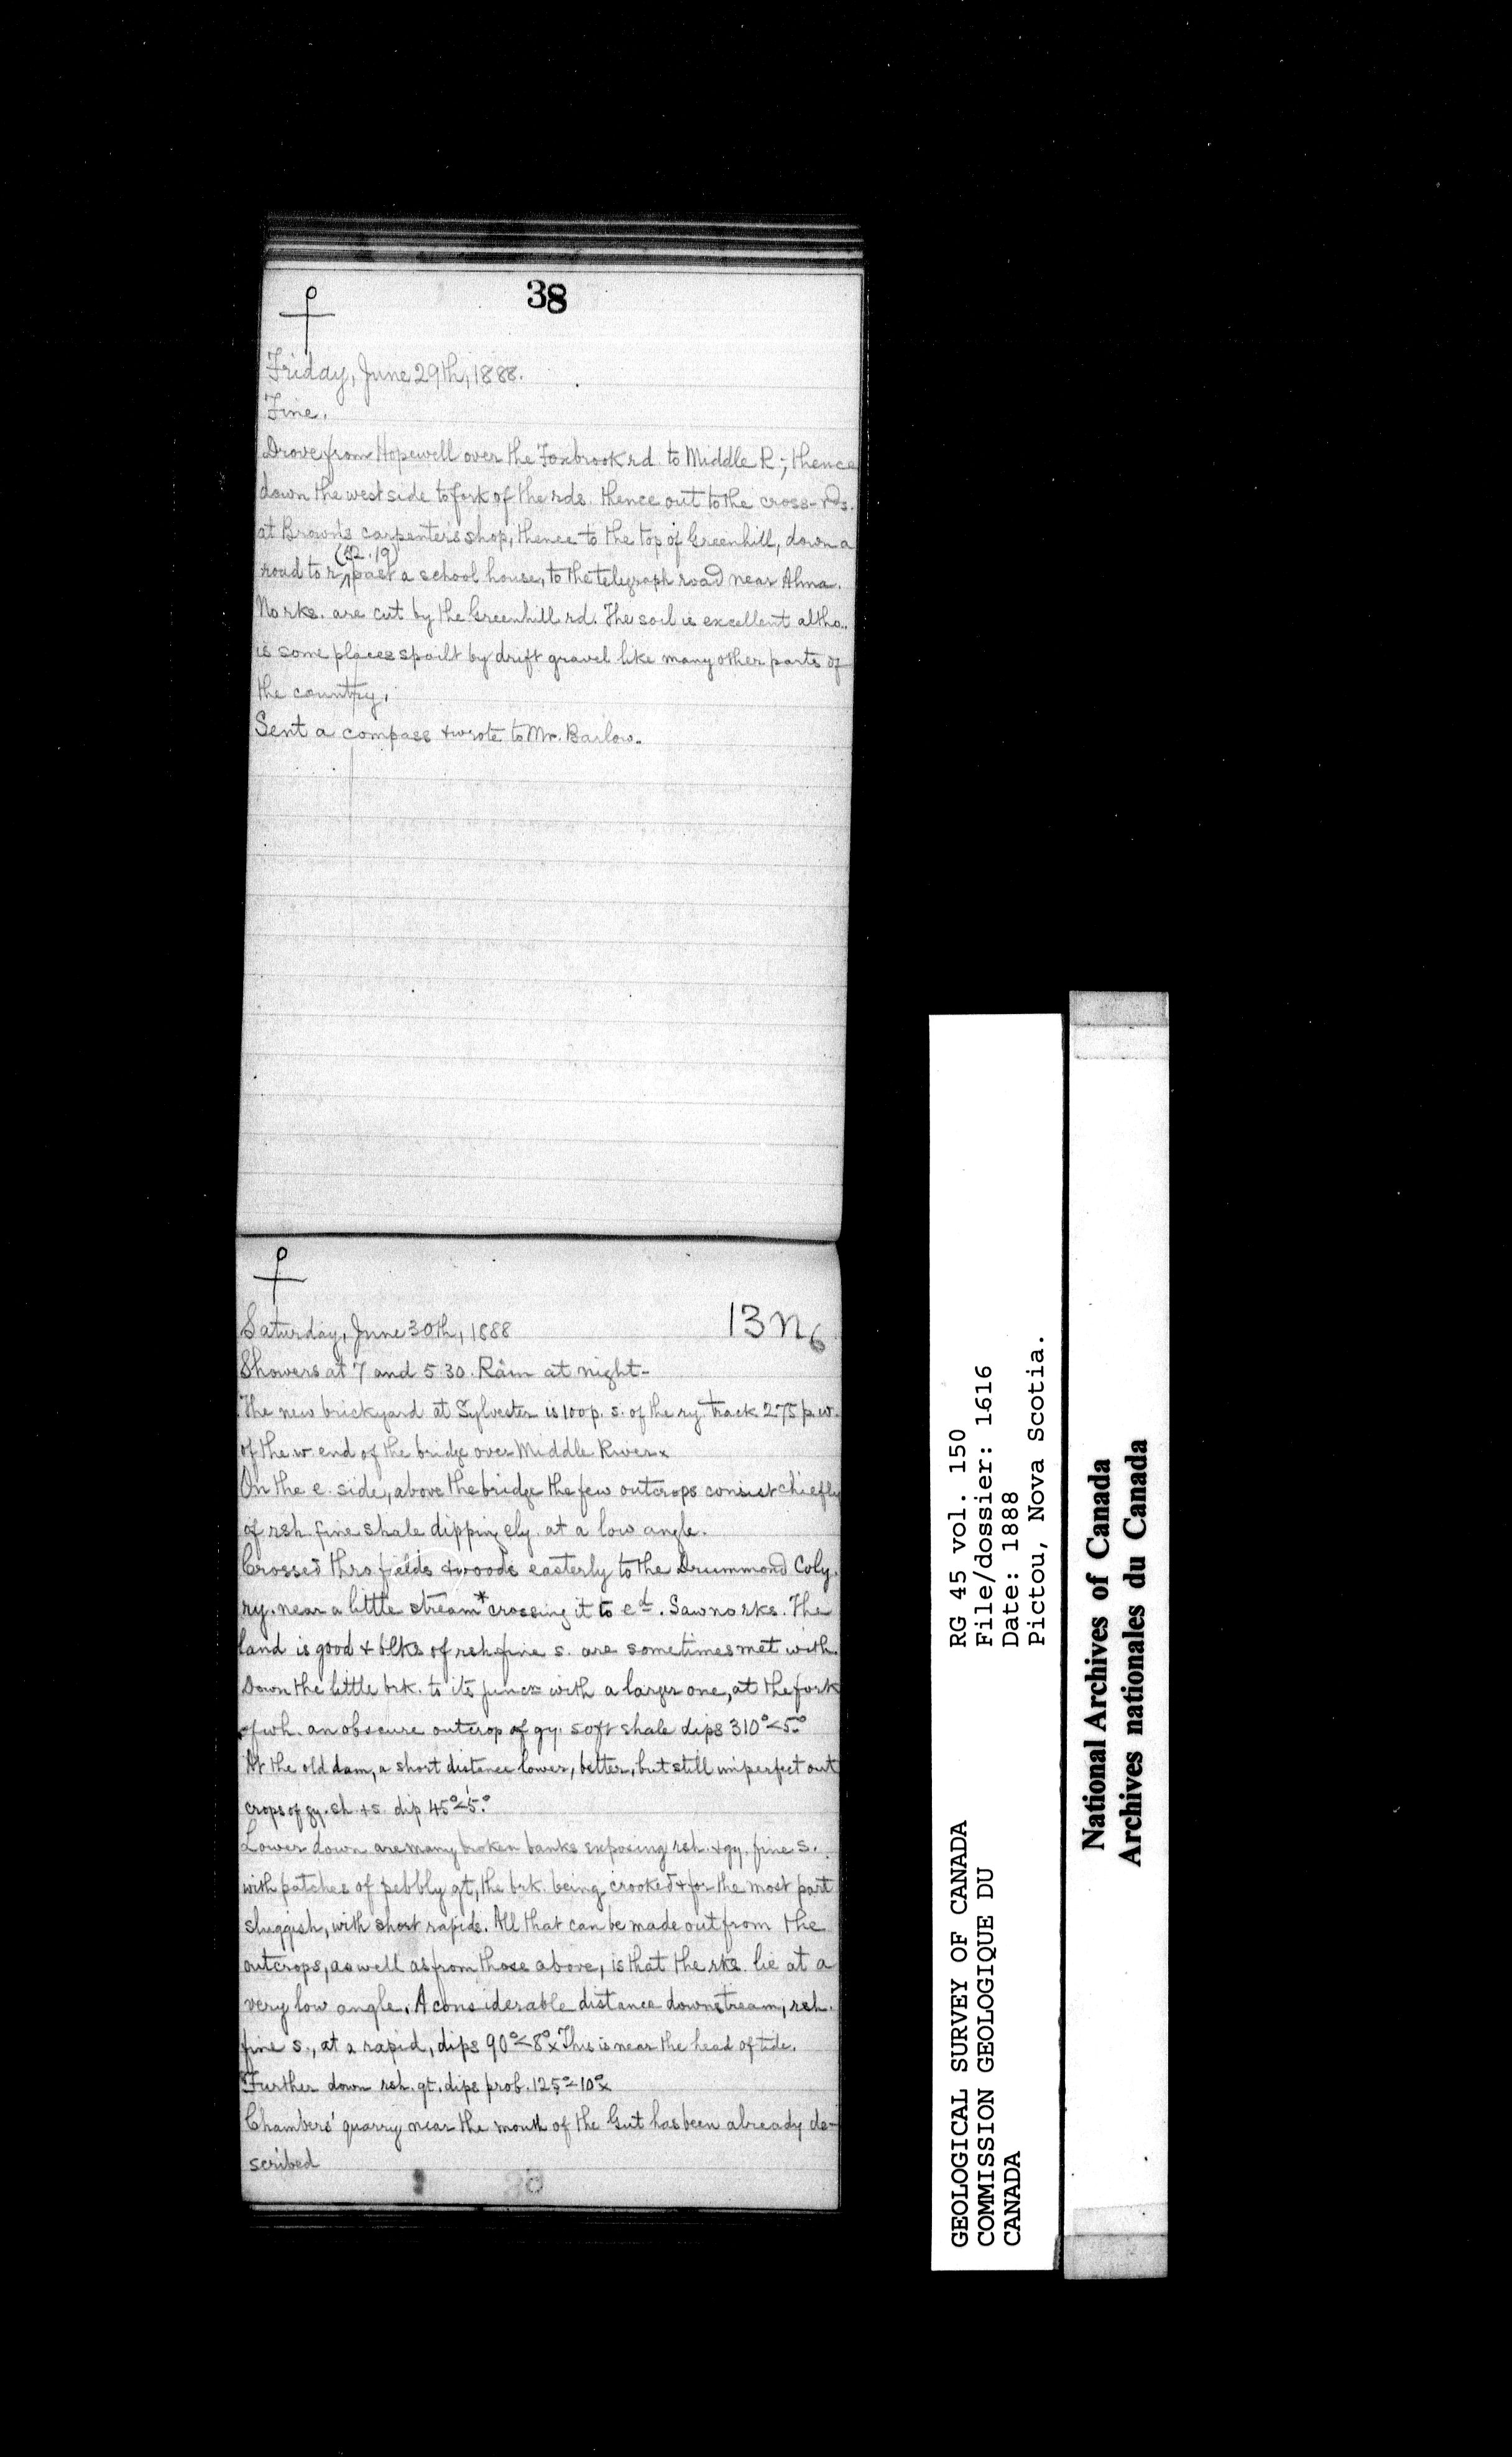 38
Friday, June 29th, 1888.
Fine.
Drove from Hopewell over the Foxbrook rd. to Middle R.; thence
down the west side to fork of the rds. thence out to the cross-rds.
at Brown's carpenter's shop, thence to the top of Greenhill, down a
(52.19)
road to r. past a school house, to the telegraph road near Alma.
No rks. are cut by the Greenhill rd. The soil is excellent altho.
is some places spoilt by drift gravel like many other parts of
the country.
Sent a compass & wrote to Mr. Barlow.
13 N6
Saturday, June 30th, 1888
Showers at 7 and 5 30. Rain at night-
The new brickyard at Sylvester is 100 p. s. of the ry. track 275 p. w.
of the w. end of the bridge over Middle River x
On the e. side, above the bridge the few outcrops consist chiefly
of rsh. fine shale dipping ely. at a low angle.
Crossed thro. fields & woods easterly to the Drummond Coly.
ry. near a little stream* crossing it to ed. Saw no rks. The
land is good & blks of rsh. fine s. are sometimes met with.
Down the little brk. to its junc= with a larger one, at the fork
of wh. an obscure outcrop of gy. soft shale dips 310°<5°
At the old dam, a short distance lower, better, but still imperfect out
crops of gy. sh. + s. dip 45°<5.°
Lower down are many broken banks exposing rsh. & gy. fine s.
with patches of pebbly gt, the brk. being crooked & for the most part
sluggish, with short rapids. All that can be made out from the
outcrops, as well as from those above, is that the rks. lie at a
very low angle. A considerable distance downstream, rsh.
fine s., at a rapid, dips 90°<8° x This is near the head of tide.
Further down rsh. gt. dips prob. 125°<10° x
Chambers' quarry near the mouth of the Gut has been already de-
scribed
GEOLOGICAL SURVEY OF CANADA
COMMISSION GEOLOGIQUE DU
CANADA
RG 45 vol. 150
File/dossier: 1616
Date: 1888
Pictou, Nova Scotia.
National Archives of Canada
Archives nationales du Canada